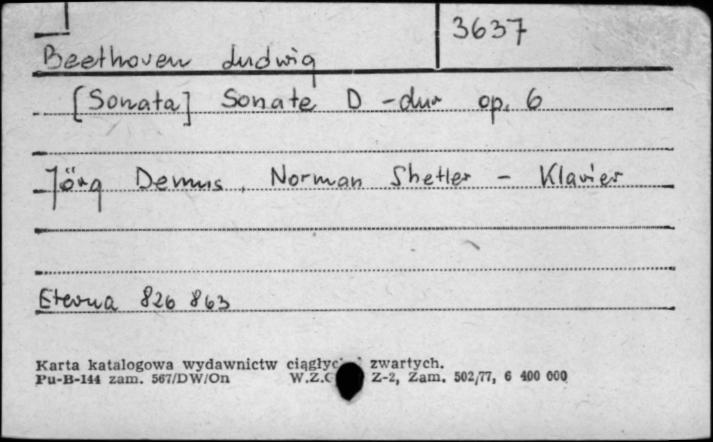 3637
Beethoven Ludwig
[Sonata] Sonate D-dur op. 6
Jörg Demus, Norman Shetler - Klavier
Eterna 826 863
Karta katalogowa wydawnictw zwartych.
Pu-B-144 zam. 567/DW/On W.Z. Z-2, Zam. 502/77, 6 400 000